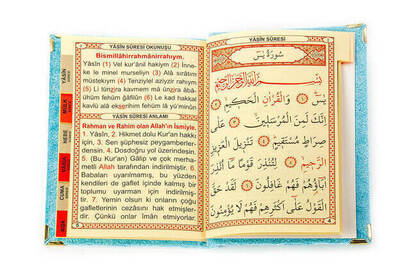 YÂSÎN SÛRESİ OKUNUŞU
Bismillâhirrahmânirrahıym.
Yâsîn (1) Vel kur'ânil hakiym (2) İnne-
ke le minel murseliyn (3) Alâ sırâtın
müstekıym (4) Tenziylel aziyzir rahıym
(5) Li tünzira kavmen mâ ünzira âbâ-
ühüm fehüm ğâfilûn (6) Le kad hakkal
kavlü alâ ekserihim fehüm lâ yü'minûn (7)
YÂSÎN SÛRESİ ANLAMI
Rahman ve Rahim olan Allah'ın İsmiyle,
1. Yâsîn, 2. Hikmet dolu Kur'an hakkı
için, 3. Sen şüphesiz peygamberler-
densin. 4. Dosdoğru yol üzerindesin.
5. (Bu Kur'an) Gâlip ve çok merha-
metli Allah tarafından indirilmiştir. 6.
Babaları uyarılmamış, bu yüzden
kendileri de gaflet içinde kalmış bir
toplumu uyarman için indirilmiş-
tir. 7. Yemin olsun ki onların çoğu
gafletlerinin cezasını hak etmişler-
dir. Çünkü onlar îman etmiyorlar.
YÂSÎN
MÜLK
NEBE
CUMA
YÂSÎN SÛRESİ
سُورَةُ يٰسٓ
بِسْمِ اللّٰهِ الرَّحْمٰنِ الرَّحِيمِ
يٰسٓ ﴿١﴾ وَالْقُرْاٰنِ الْحَكِيمِ ﴿٢﴾
اِنَّكَ لَمِنَ الْمُرْسَلِينَ ﴿٣﴾ عَلٰى
صِرَاطٍ مُسْتَقِيمٍ ﴿٤﴾ تَنْزِيلَ الْعَزِيزِ
الرَّحِيمِ ﴿٥﴾ لِتُنْذِرَ قَوْمًا مَٓا اُنْذِرَ
اٰبَٓاؤُهُمْ فَهُمْ غَافِلُونَ ﴿٦﴾ لَقَدْ حَقَّ
الْقَوْلُ عَلٰٓى اَكْثَرِهِمْ فَهُمْ لَا يُؤْمِنُونَ